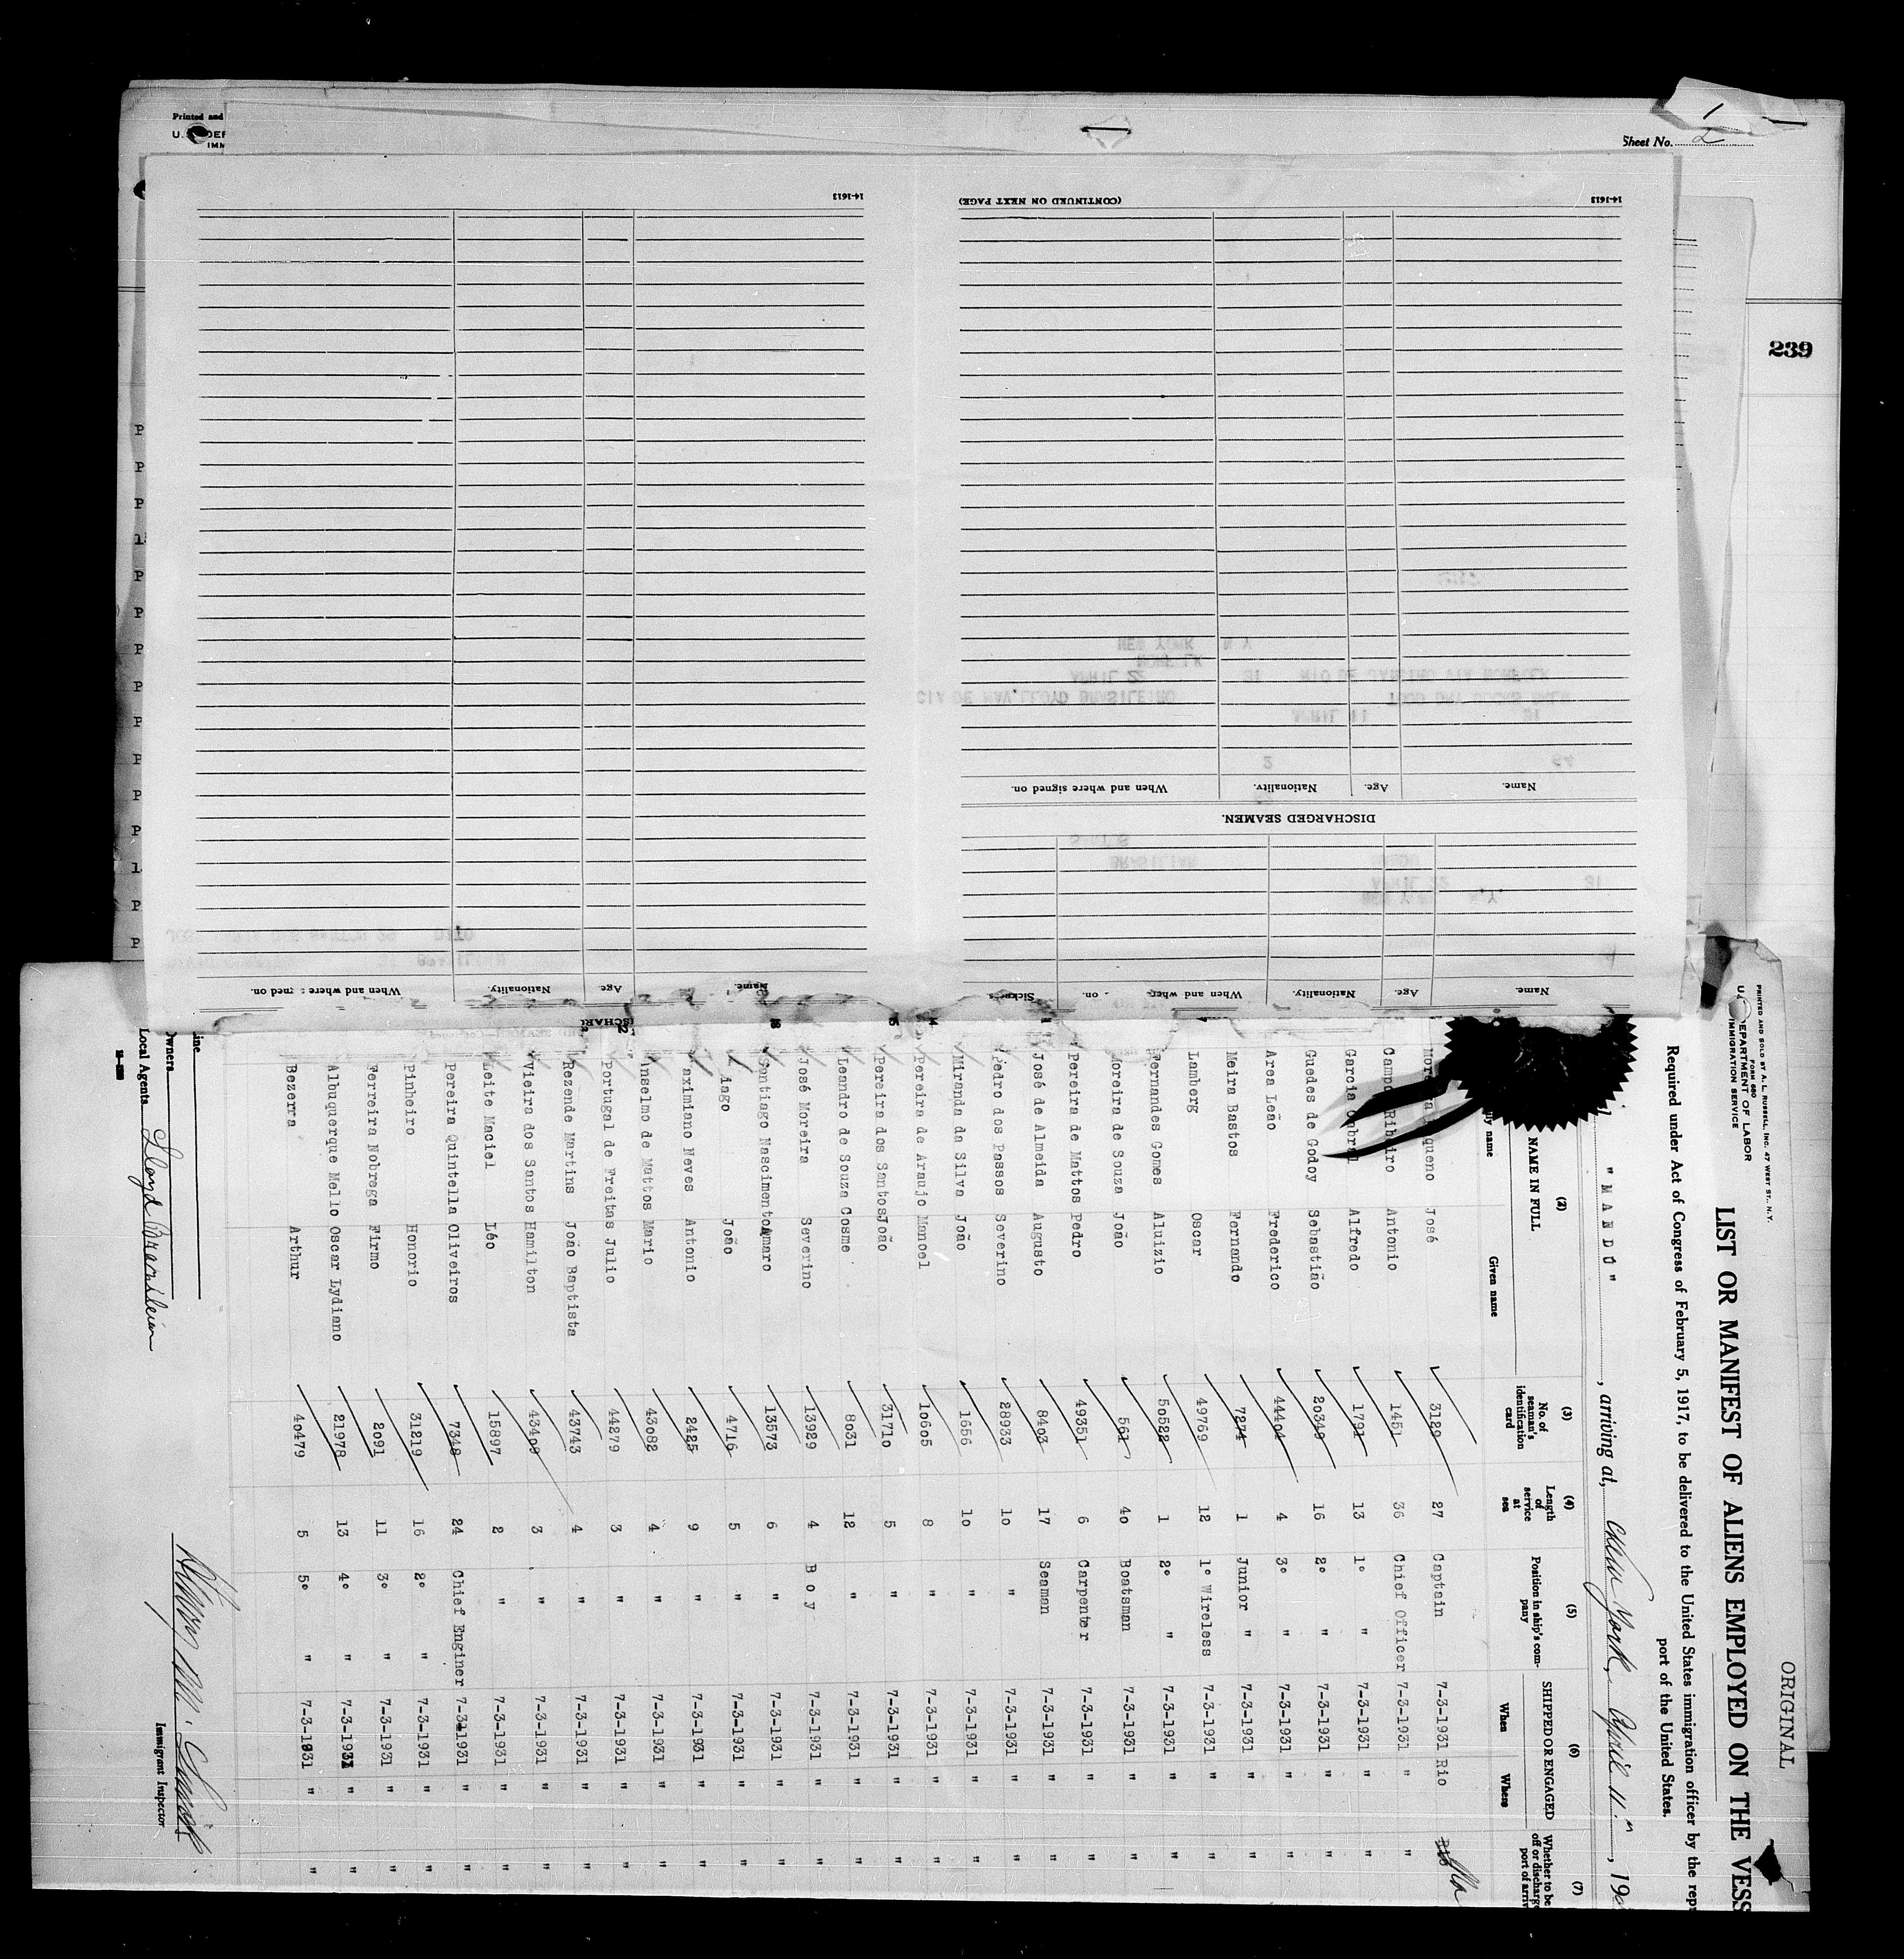 Printed and
U.S. DEP
IMM
Sheet No. 2
1
239
14-1613
14-1613
(CONTINUED ON NEXT PAGE)
Name. Age. Nationality. When and where signed on.
DISCHARGED SEAMEN.
Name. Age. Nationality. When and where
Name. Age. Nationality. When and where signed on.
ORIGINAL
PRINTED AND SOLD BY A. L. RUSSELL, INC., 47 WEST ST., N. Y.
FORM 680
U. DEPARTMENT OF LABOR
IMMIGRATION SERVICE
LIST OR MANIFEST OF ALIENS EMPLOYED ON THE VESS
Required under Act of Congress of February 5, 1917, to be delivered to the United States immigration officer by the repr
port of the United States.
"MANDÚ", arriving at, New York, April 11th, 19
(2) (3) (4) (5) (6) (7)
NAME IN FULL
Given name
No. of seaman's identification card
Length of service at sea
Position in ship's company
SHIPPED OR ENGAGED
When Where
Whether to be
off or discharg
port of arriv
José 3129 27 Captain 7-3-1931 Rio
Campo Ribeiro Antonio 1451 36 Chief Officer 7-3-1931 "
Garcia Cabral Alfredo 1791 13 1º " 7-3-1931 " "
Guedes de Godoy Sebastião 20349 16 2º " 7-3-1931 " "
Area Leão Frederico 44404 4 3º " 7-3-1931 " "
Meira Bastos Fernando 7274 1 Junior " 7-3-1931 " "
Lamberg Oscar 49769 12 1º Wireless 7-3-1931 " "
Fernandes Gomes Aluizio 50522 1 2º " 7-3-1931 " "
Moreira de Souza João 561 40 Boatsman 7-3-1931 " "
Pereira de Mattos Pedro 49351 6 Carpenter 7-3-1931 " "
José de Almeida Augusto 8403 17 Seaman 7-3-1931 " "
Pedro dos Passos Severino 28933 10 " 7-3-1931 " "
Miranda da Silva João 1656 10 " 7-3-1931 " "
Pereira de Araujo Manoel 10605 8 " 7-3-1931 " "
Pereira dos Santos João 31710 5 " 7-3-1931 " "
Leandro de Souza Cosme 8031 12 " 7-3-1931 " "
José Moreira Severino 13929 4 Boy 7-3-1931 " "
Santiago Nascimento Amaro 13573 6 " 7-3-1931 " "
iago João 4716 5 " 7-3-1931 " "
aximiano Neves Antonio 2425 9 " 7-3-1931 " "
Anselmo de Mattos Mario 43082 4 " 7-3-1931 " "
Portugal de Freitas Julio 44279 3 " 7-3-1931 " "
Rezende Martins João Baptista 43743 4 " 7-3-1931 " "
Vieira dos Santos Hamilton 43409 3 " 7-3-1931 " "
Leite Maciel Léo 15897 2 " 7-3-1931 " "
Pereira Quintella Oliveiros 7348 24 Chief Enginer 7-3-1931 " "
Pinheiro Honorio 31219 16 2º " 7-3-1931 " "
Ferreira Nobrega Firmo 2091 11 3º " 7-3-1931 " "
Albuquerque Mello Oscar Lydiano 21978 13 4º " 7-3-1931 " "
Bezerra Arthur 40479 5 5º " 7-3-1931 " "
Line
Owners
Local Agents Lloyd Brasileiro
Immigrant Inspector